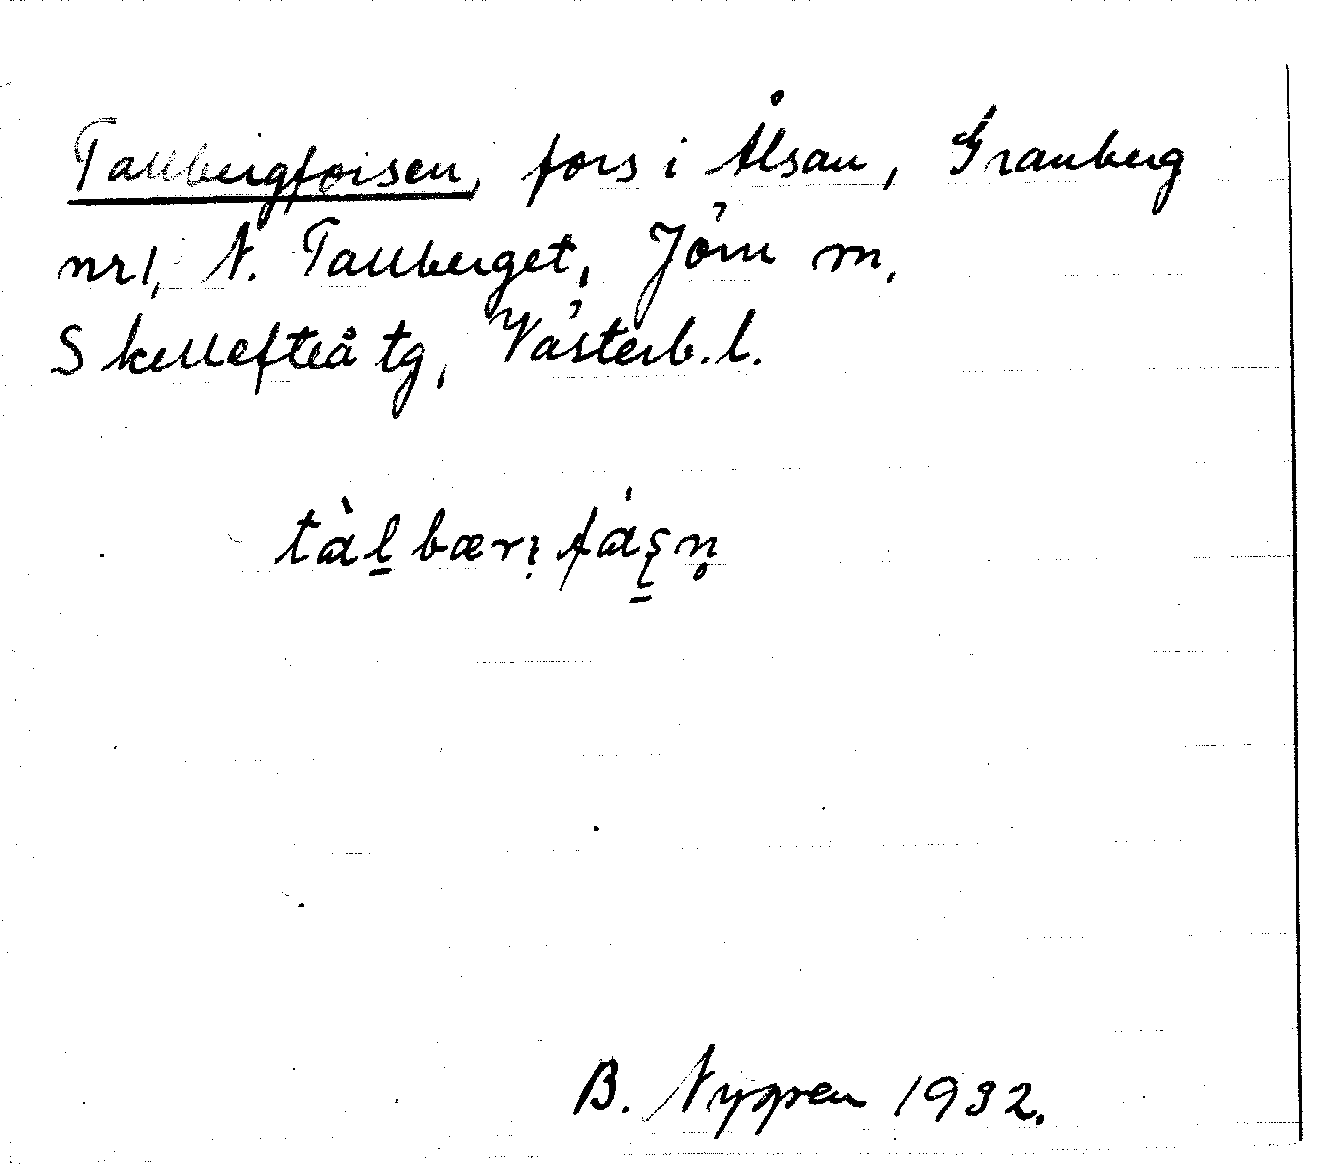 Tallbergforsen, fors i Ålsån, Granberg
nr 1, N. Tallberget, Jörn sn,
Skellefteå tg, Västerb. l.
tàl̠bærı̣fás̠n̥
B. Nygren 1932.